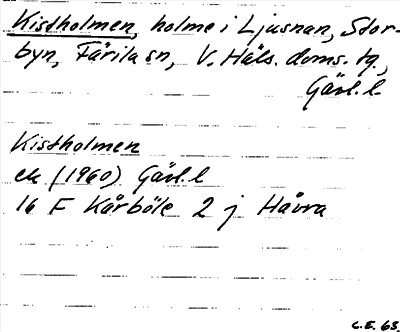 Kistholmen, holme i Ljusnan, Stor-
byn, Färila sn, V. Häls. doms. tg.,
Gävl. l.
Kistholmen
ek (1960) Gävl. l
16 F Kårböle 2 j Håvra
C.E. 63.